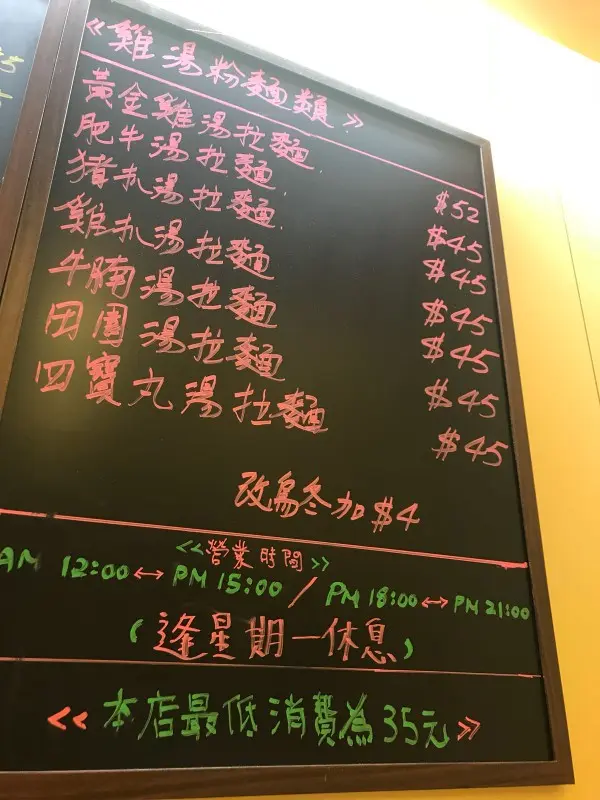 《雞湯粉麵類》
黃金雞湯拉麵 $52
肥牛湯拉麵 $45
豬扒湯拉麵 $45
雞扒湯拉麵 $45
牛腩湯拉麵 $45
田園湯拉麵 $45
四寶丸湯拉麵 $45
改烏冬加$4
<<營業時間>>
AM 12:00↔PM 15:00 / PM 18:00↔PM 21:00
(逢星期一休息)
<<本店最低消費為35元>>